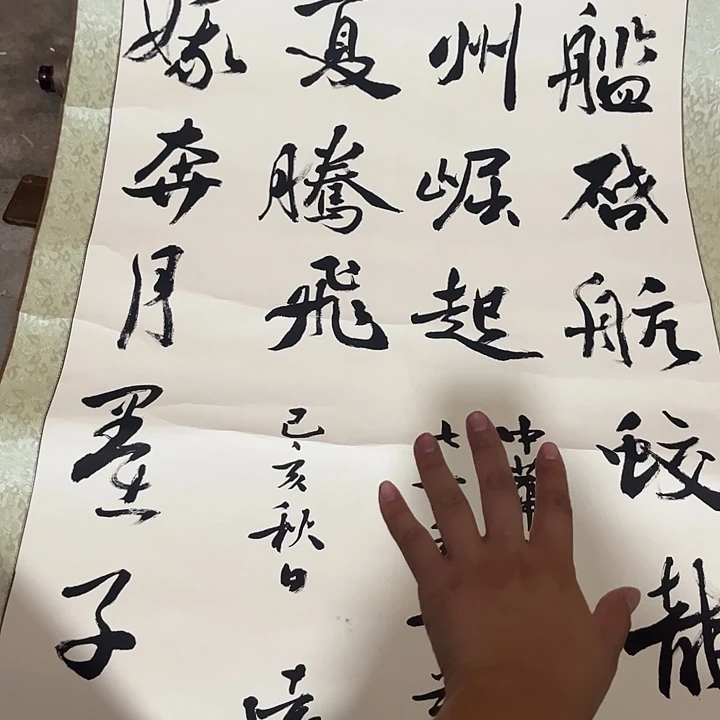 艦啓航蛟龍
州崛起
中華
七
夏騰飛
己亥秋日
娥奔月墨子